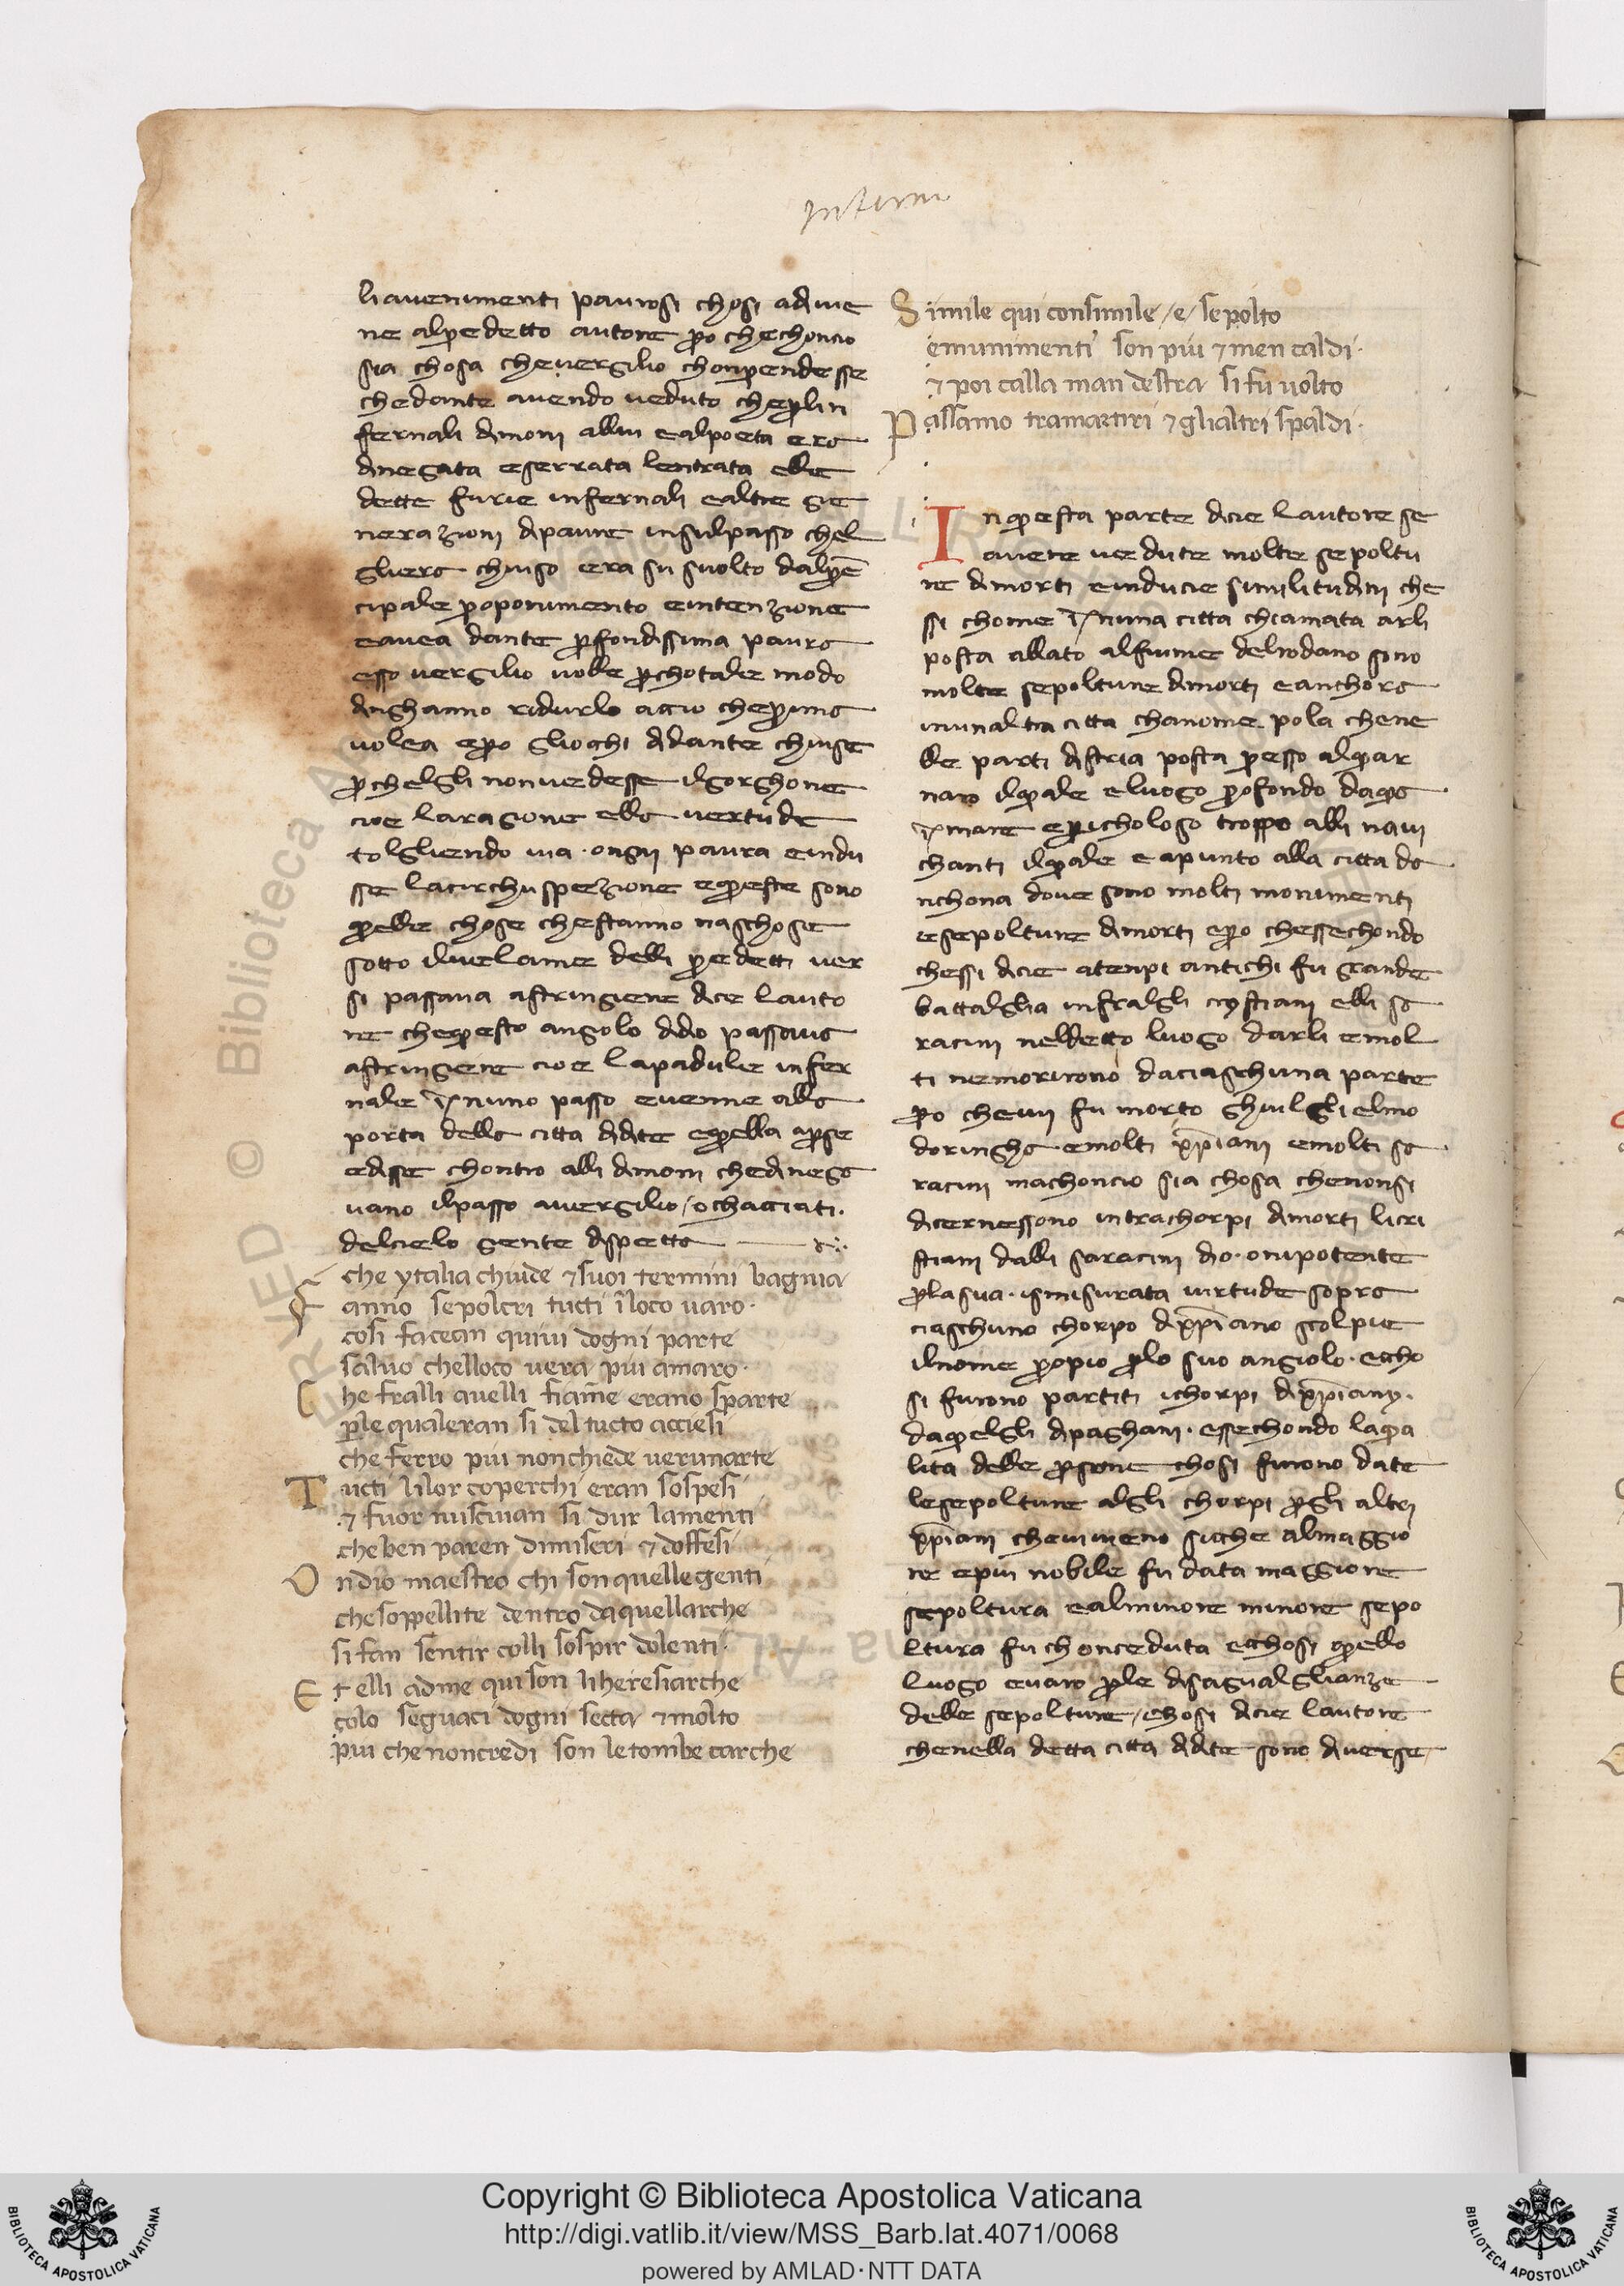 Inferni
li avenimenti paurosi chosi adiuie
ne alpredetto autore pero chechoncio
sia chosa cheuergilio chonprendesse
chedante auendo ueduto cheplin
fernali dimoni allui ealpoeta era
dinegata eserrata lentrata elle
dette furie infernali ealtre gie
nerazioni dipaure insulpasso chel
gliera chiuso era su suolto dalprē
cipale proponimento eintenzione
eauea dante profondissima paura
esso uergilio uolle perchotale modo
dinghanno ridurlo accio cheprima
uolea epero gliocchi didante chiuse
perchelgli nonuedesse ilgorghone
cioe laragione ella uertude
tolgliendo uia ongni paura eindu
sse lacirchuspezione equeste sono
quelle chose chestanno naschose
sotto iluelame delli predetti uer
si passaua astringiene dicie lauto
re chequesto angolo didio passaua
astringiene cioe lapadule infer
nale īnuno passo euenne alla
porta della citta didite equella aperse
edisse chontro alli dimoni chedinega
uano ilpasso auergilio / o chacciati.
delcielo gente dispetta
che ytalia chiude 7 suoi termini bagnia
anno sepolcri tucti īloco uaro.
cosi facean quiui dogni parte
saluo chelloco uera piu amaro.
Che fralli auelli fiame erano sparte
perle qualeran si del tucto acciesi
che ferro piu nonchiede uerunarte
Tucti lilor coperchi eran sospesi
7 fuor nusciuan si dur lamenti
cheben paren dimiseri 7 doffesi
Ondio maestro chi sonquellegenti
chesoppellite dentro daquellarche
si fan sentir colli sospir dolenti.
Et elli adme qui son liheresiarche
colo seguaci dogni secta 7 molto
piu che noncredi son letombe carche
Simile qui consimile / e / sepolto
emunimenti son piu 7 men caldi.
7 poi calla man destra si fu uolto
Passamo tramartiri 7 glialtri spaldi.
Inquesta parte dicie lautore se
auere uedute molte sepoltu
re dimorti einducie similitudini che
ssi chome īnuna citta chiamata arli
posta allato alfiume delrodano sono
molte sepolture dimorti eanchora
inunaltra citta chanome pola chene
lle parti distria posta presso alquar
naro ilquale eluogo profondo daqua
īmare epericholoso troppo alli naui
chanti ilquale eapunto alla citta da
nchona doue sono molti monimenti
esepolture dimorti epero chessechondo
chessi dicie atenpi antichi fu grande
battalglia infralgli cristiani elli sa
racini neldetto luogo darli emol
ti nemorirono daciaschuna parte
pero cheuj fu morto ghuilglielmo
doringha emolti xpiani emolti sa
racini machoncio sia chosa chenonsi
dicernessono intrachorpi dimorti licri
stiani dalli saracini dio. onipotente
perlasua. ismisurata uirtude sopra
ciaschuno chorpo dixpiano scolpie
ilnome propio perlo suo angiolo. eccho
si furono partiti ichorpi dixpiany.
daquelgli dipaghani. essechondo laqua
lita delle persone chosi furono date
lesepolture algli chorpi pergli altri
xpiani cheuiueno sicche almaggio
re epiu nobile fu data maggiore
sepoltura ealminore minore sepo
ltura fu chonceduta ecchosi quello
luogo euaro perle disagualglianze
delle sepolture / chosi dicie lautore
chenella detta citta didite sono diuerse /
Copyright © Biblioteca Apostolica Vaticana
http://digi.vatlib.it/view/MSS_Barb.lat.4071/0068
powered by AMLAD·NTT DATA